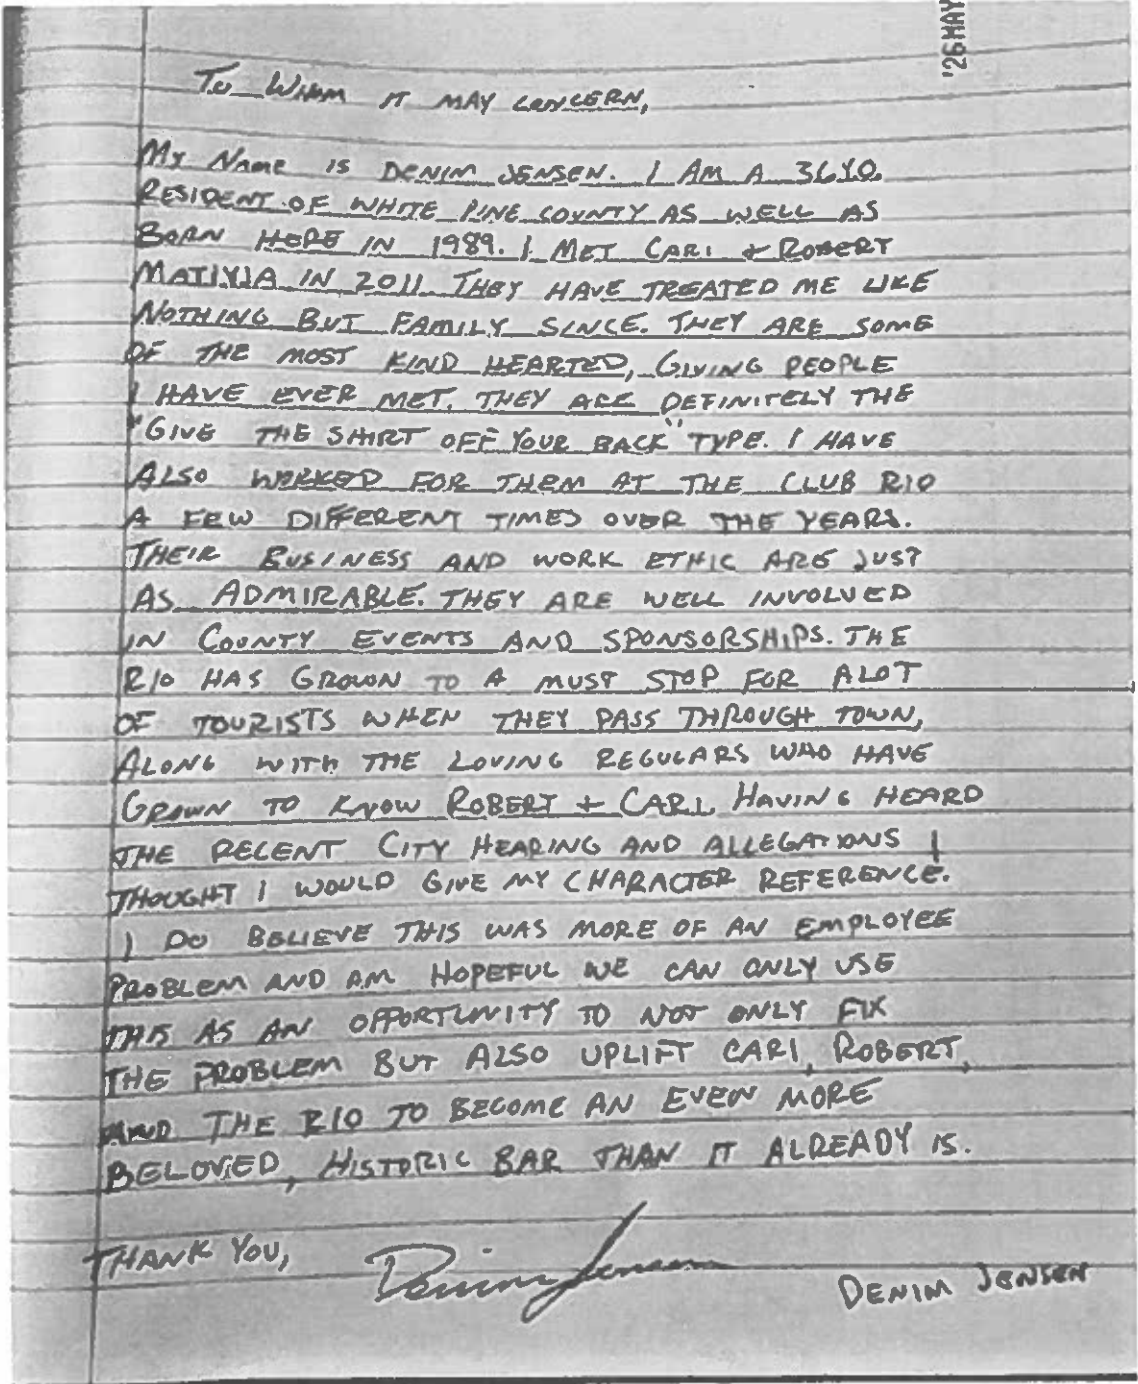 '26 MAY
To Whom it may concern,
My Name is Denim Jensen. I am a 36 Y.O.
Resident of White Pine County as well as
Born here in 1989. I met Cari + Robert
in 2011. They have treated me like
Nothing but family since. They are some
of the most kind hearted, giving people
I have ever met. They are definitely the
"Give the shirt off your back" type. I have
also worked for them at the Club Rio
a few different times over the years.
Their business and work ethic are just
as admirable. They are well involved
in County events and sponsorships. The
Rio has grown to a must stop for alot
of tourists when they pass through town,
along with the loving regulars who have
grown to know Robert + Cari. Having heard
the recent City Hearing and allegations I
thought I would give my character reference.
I do believe this was more of an employee
problem and am hopeful we can only use
this as an opportunity to not only fix
the problem but also uplift Cari, Robert,
and the Rio to become an even more
beloved, historic bar than it already is.
Thank you, Denim Jensen
Denim Jensen